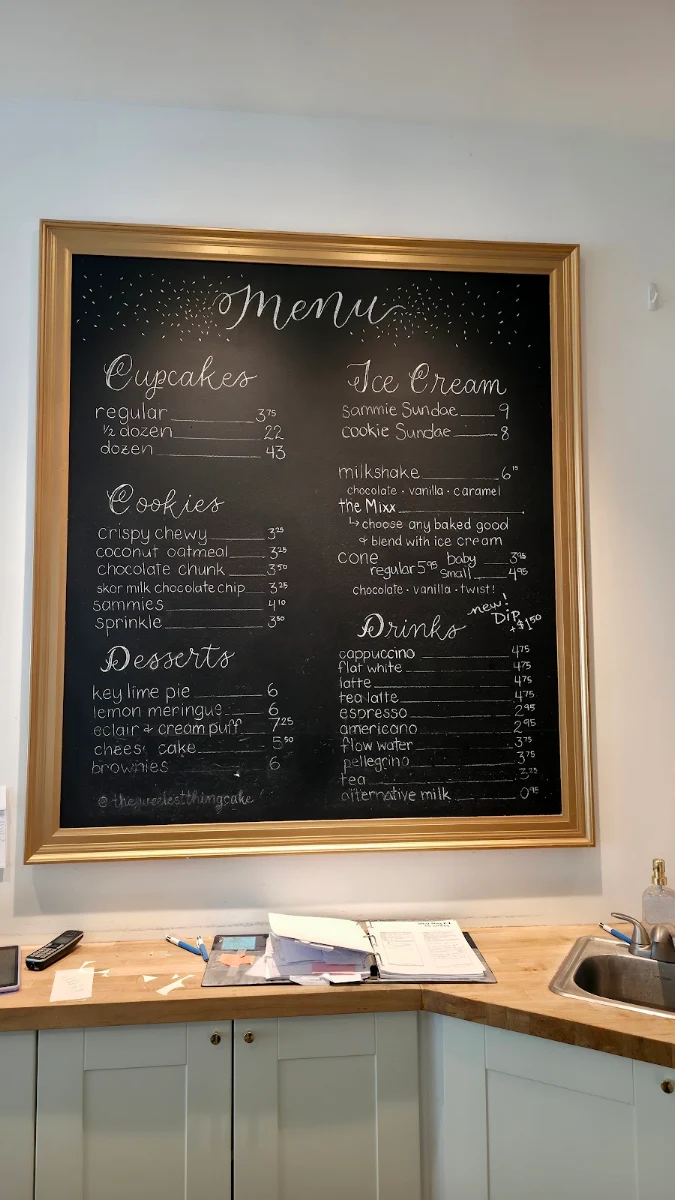 Menu
Cupcakes
regular 3.75
1/2 dozen 22
dozen 43
Cookies
crispy chewy 3.25
coconut oatmeal 3.25
chocolate chunk 3.50
skor milk chocolate chip 3.25
sammies 4.10
sprinkle 3.50
Desserts
key lime pie 6
lemon meringue 6
eclair & cream puff 7.25
chees cake 5.50
brownies 6
@thesweetestthingcake
Ice Cream
sammie Sundae 9
cookie Sundae 8
milkshake 6.15
chocolate · vanilla · caramel
the Mixx
↳ choose any baked good
& blend with ice cream
cone baby 3.95
regular 5.95 small 4.95
chocolate · vanilla · twist!
new!
Dip
+$1.50
Drinks
cappuccino 4.75
flat white 4.75
latte 4.75
tea latte 4.75
espresso 2.95
americano 2.95
flow water 3.75
pellegrino 3.75
tea 3.25
alternative milk 0.95